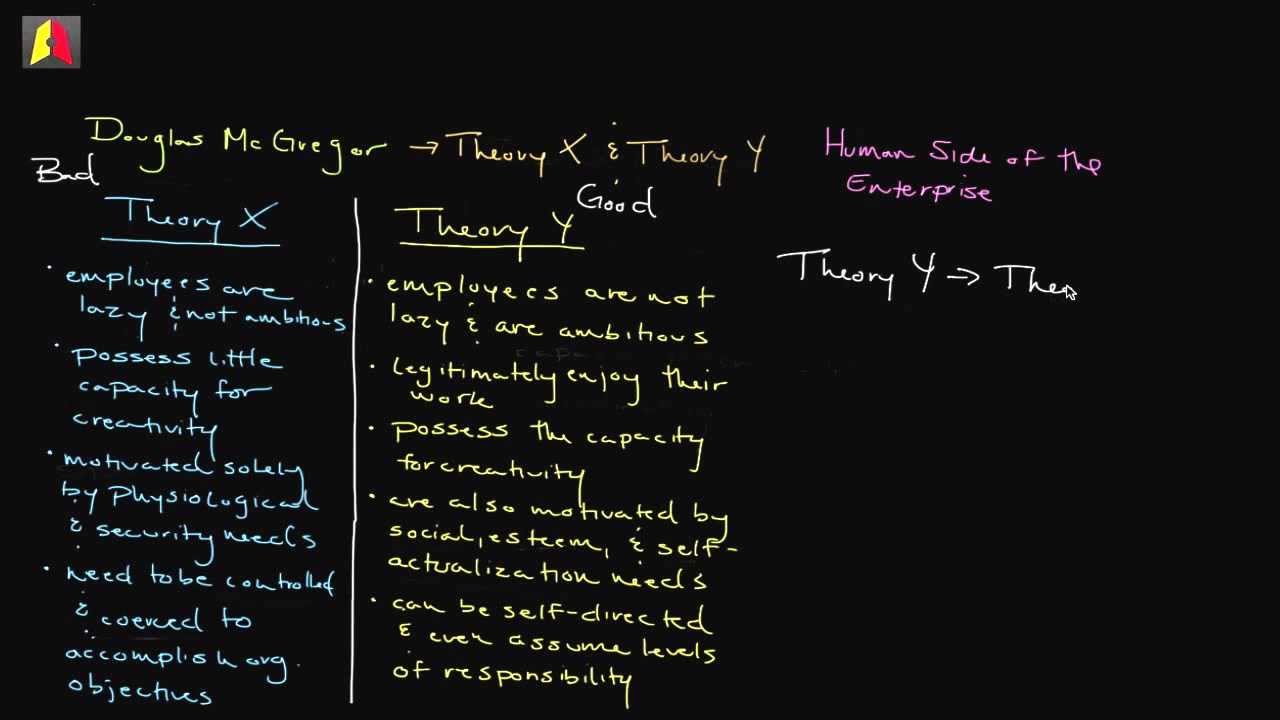 Douglas McGregor → Theory X & Theory Y
Human Side of the
Enterprise
Bad
Good
Theory X
employees are
lazy & not ambitious
• possess little
capacity for
creativity
• motivated solely
by physiological
& security needs
• need to be controlled
& coerced to
accomplish org.
objectives
Theory Y
• employees are not
lazy & are ambitious
• legitimately enjoy their
work
• possess the capacity
for creativity
• are also motivated by
social, esteem, & self-
actualization needs
• can be self-directed
& even assume levels
of responsibility
Theory Y → Theo